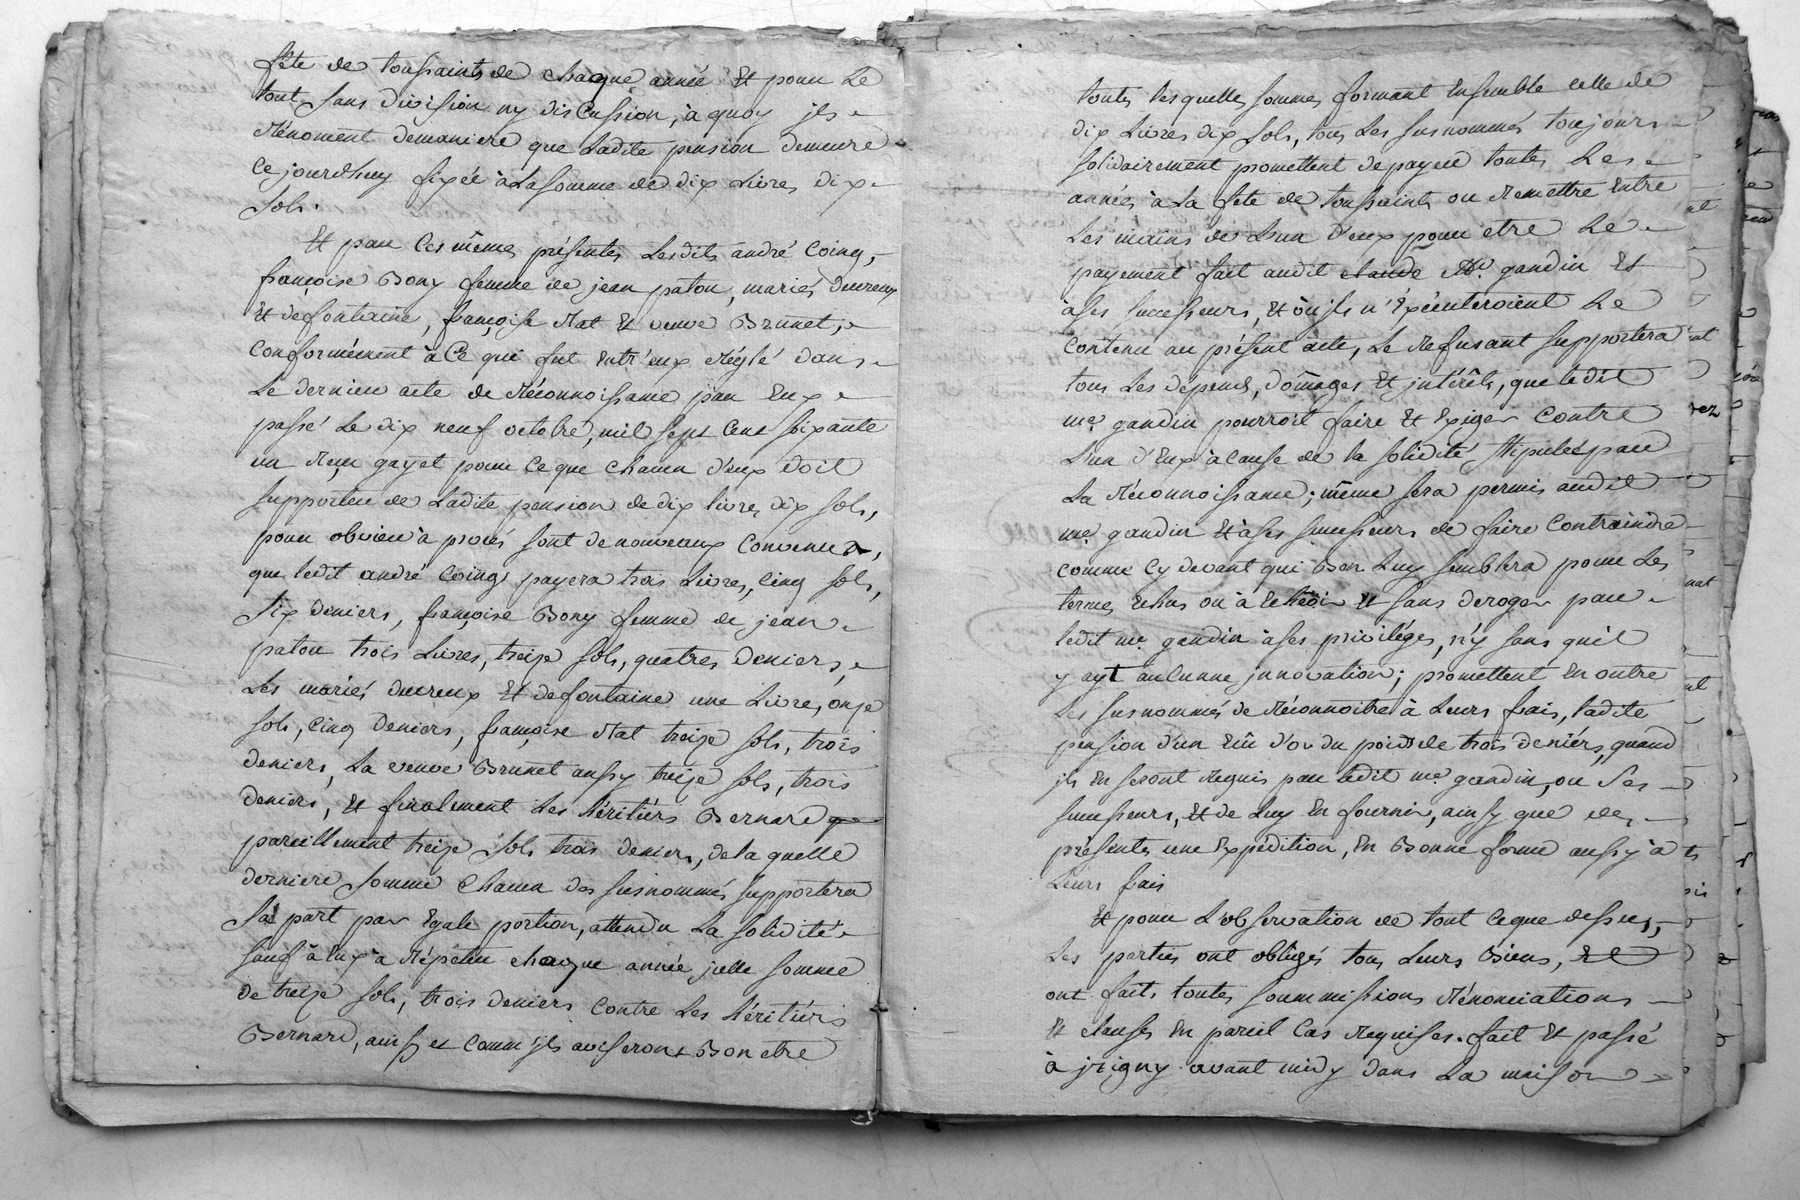 fête de toussaints de chaque année Et pour Le
tout sans division ny discussion, à quoy ils
Rénoncent demaniere que Ladite pension demeure
Cejourdhuy fixée àLasomme de dix Livres dix
sols.
Et par Ces mêmes présentes Lesdits andré Coing,
françoise Bony femme de jean paton, mariés ducreux
Et defontaine, françoise Mat Et veuve Brunet,
Conformément à Ce qui fut Entr'eux Réglé dans
Le dernier acte de Réconnoissance par Eux
passé Le dix neuf octobre, mil sept Cent soixante
un Reçu gayet pour Ce que Chacun d'eux doit
supporter de Ladite pension de dix livres dix sols,
pour obvier à procés sont denouveaux Convenus,
que ledit andré Coing payera trois Livres, Cinq sols,
six deniers, françoise Bony femme de jean
paton trois Livres, treize sols, quatres deniers,
Les mariés ducreux Et defontaine une Livre, onze
sols, Cinq deniers, françoise Mat treize sols, trois
deniers, La veuve Brunet aussy treize sols, trois
deniers, Et finalement Les héritiérs Bernard
pareillement treize sols trois deniers, de la quelle
derniere somme Chacun des susnommés supportera
Sa part par Egale portion, attendu La solidité
sauf à Eux à Répéter chaque année jcelle somme
de treize sols, trois deniers Contre Les héritiérs
Bernard, ainsy et Comm jls aviseront Bon etre
toutes lesquelles sommes formant Ensemble celle de
dix Livres dix sols, tous Les susnommés toujours
solidairement promettent de payer toutes Les
années à La fête de toussaints ou Remettre Entre
Les mains de L'un d'eux pour etre Le
payement fait audit claude Me. gandin Et
àses successeurs, Et où jls n'Exécuteroient Le
Contenu au présent acte, Le Refusant supportera
tous Les dépens, dômages Et jntérêts, que ledit
me. gandin pourroit faire Et Exiger Contre
L'un d'Eux àcause de la solidité stipulée par
La Réconnoissance; même sera permis audit
me. gandin Et àses successeurs de faire Contraindre
comme Cy devant qui Bon Luy semblera pour Les
termes Echus ou à Echéoir Et sans deroger par
ledit me. gandin àses priviléges, n'y sans qu'il
y ayt aucunne jnnovation; promettent En outre
Les susnommés de Réconnoitre à Leurs frais, ladite
pension d'un Ecû d'or du poids de trois deniérs, quand
jls En seront Requis par ledit me. gandin, ou ses
successeurs, Et de Luy En fournir, ainsy que des
présentes une Expédition, En Bonne forme aussy à
Leurs frais
Et pour L'observation de tout Ceque dessus,
Les parties ont obligés tous Leurs Biens, Et
ont faits toutes soummissions Rénonciations
Et clauses En pareil Cas Requises. fait Et passé
à jrigny avant midy dans La maison